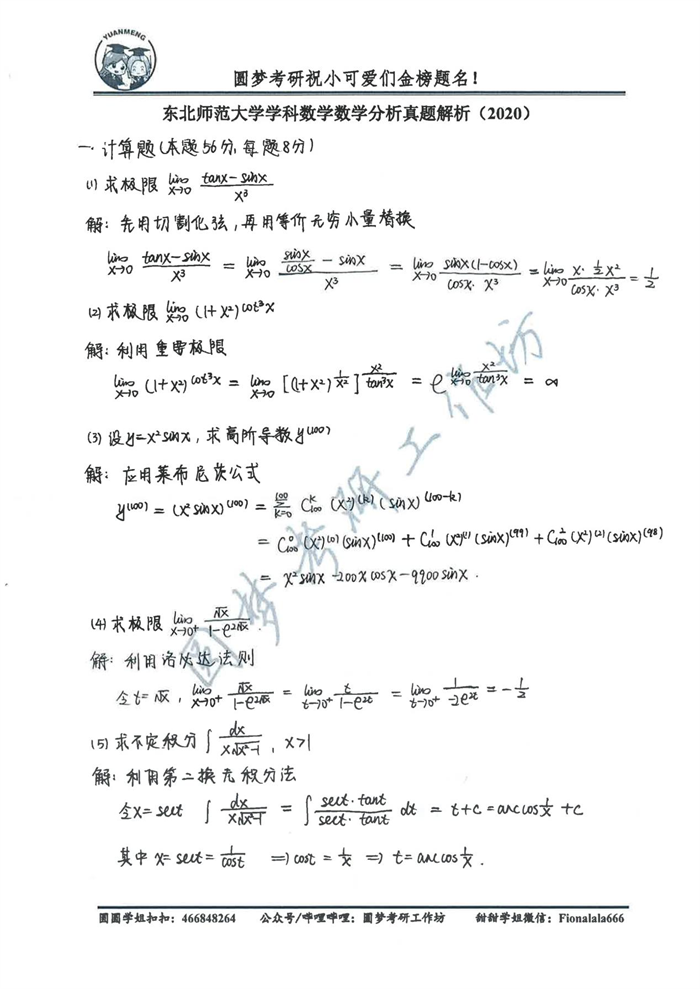 YUANMENG
圆梦考研祝小可爱们金榜题名！
东北师范大学学科数学数学分析真题解析（2020）
一、计算题（本题56分，每题8分）
(1) 求极限 lim x→0 (tanx-sinx)/x³
解：先用切割化弦，再用等价无穷小量替换
lim x→0 (tanx-sinx)/x³ = lim x→0 (sinx/cosx - sinx)/x³ = lim x→0 sinx(1-cosx)/(cosx·x³) = lim x→0 (x·½x²)/(cosx·x³) = 1/2
(2) 求极限 lim x→0 (1+x²)^(cot³x)
解：利用重要极限
lim x→0 (1+x²)^(cot³x) = lim x→0 [(1+x²)^(1/x²)]^(x²/tan³x) = e^(lim x→0 x²/tan³x) = ∞
(3) 设y=x²sinx，求高阶导数y⁽¹⁰⁰⁾
解：应用莱布尼茨公式
y⁽¹⁰⁰⁾ = (x²sinx)⁽¹⁰⁰⁾ = Σ_{k=0}^{100} C₁₀₀^k (x²)^(k) (sinx)^(100-k)
= C₁₀₀^0 (x²)^(0) (sinx)^(100) + C₁₀₀^1 (x²)^(1) (sinx)^(99) + C₁₀₀^2 (x²)^(2) (sinx)^(98)
= x²sinx -200x cosx - 9900 sinx.
(4) 求极限 lim x→0⁺ √x/(1-e^(2√x)).
解：利用洛必达法则
令t=√x, lim x→0⁺ √x/(1-e^(2√x)) = lim t→0⁺ t/(1-e^(2t)) = lim t→0⁺ 1/(-2e^(2t)) = -1/2
(5) 求不定积分 ∫ dx/(x√(x²-1)), x>1
解：利用第二换元积分法
令x=sect ∫ dx/(x√(x²-1)) = ∫ (sect·tant)/(sect·tant) dt = t+c = arccos 1/x +c
其中 x=sect=1/cost ⇒ cost=1/x ⇒ t=arccos 1/x.
圆梦考研工作坊
圆圆学姐扣扣：466848264 公众号/哔哩哔哩：圆梦考研工作坊 甜甜学姐微信：Fionalala666